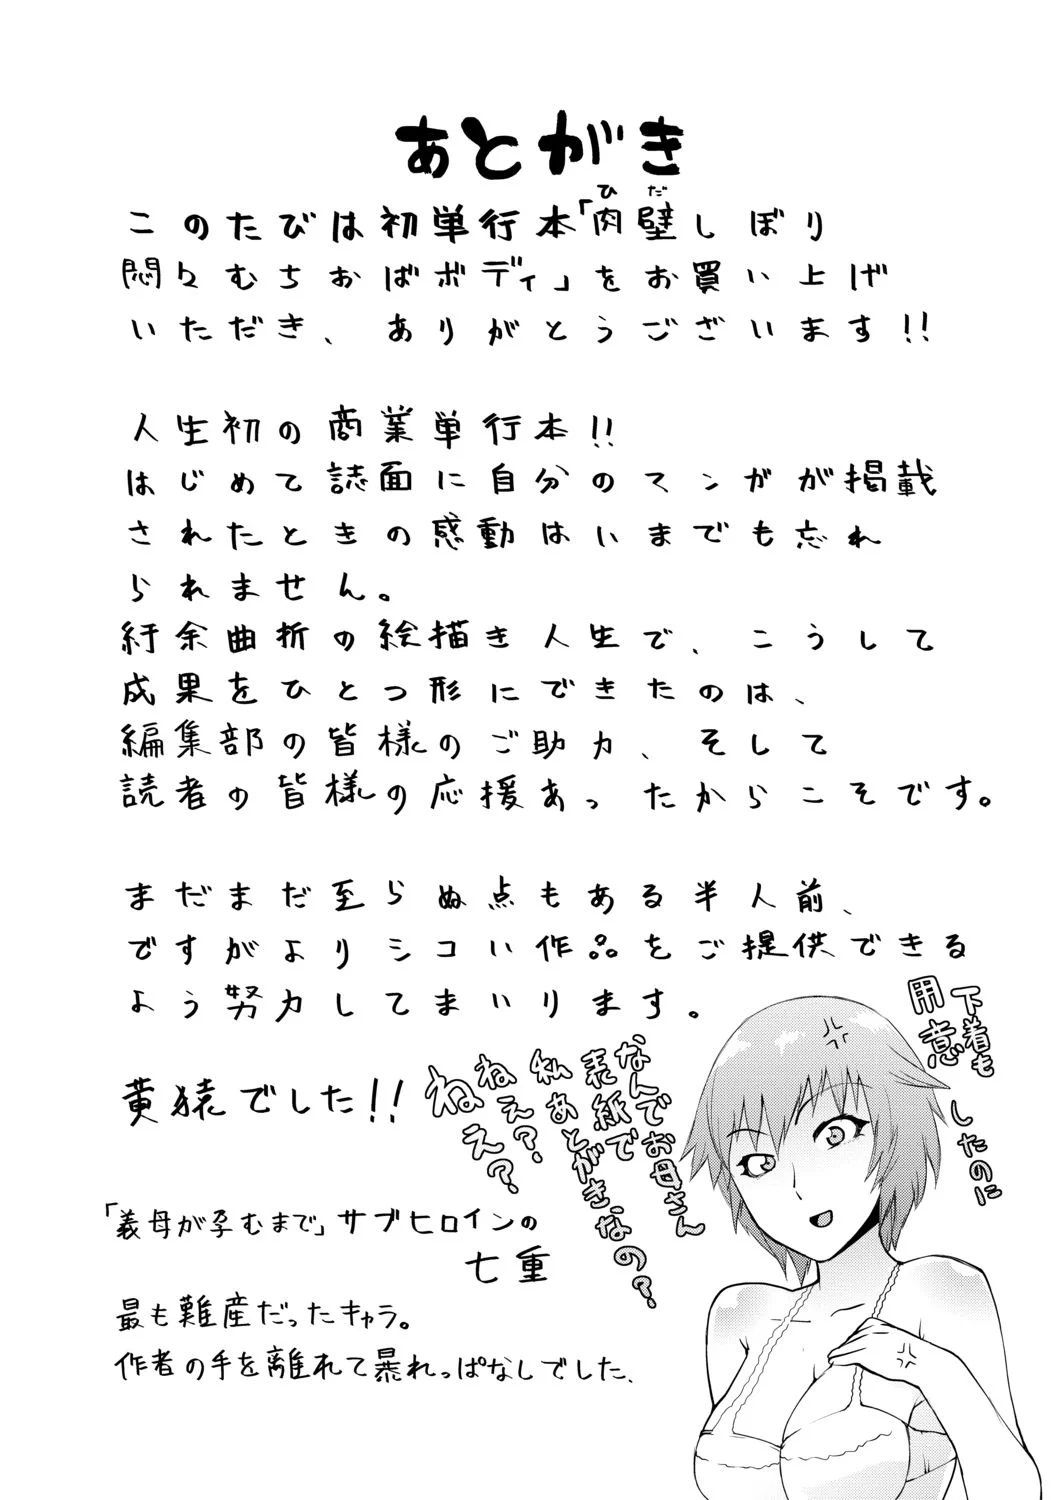 あとがき
このたびは初単行本「肉壁しぼり
ひだ
悶々むちおばボディ」をお買い上げ
いただき、ありがとうございます!!
人生初の商業単行本!!
はじめて誌面に自分のマンガが掲載
されたときの感動はいまでも忘れ
られません。
紆余曲折の絵描き人生で、こうして
成果をひとつ形にできたのは、
編集部の皆様のご助力、そして
読者の皆様の応援あったからこそです。
まだまだ至らぬ点もある半人前、
ですがよりシコい作品をご提供できる
よう努力してまいります。
黄猿でした!!
下着も
用意
したのに
なんでお母さん
表紙で
私あとがきなの?
ねえ?
ねえ?
ねえ?
「義母が孕むまで」サブヒロインの
七重
最も難産だったキャラ。
作者の手を離れて暴れっぱなしでした、